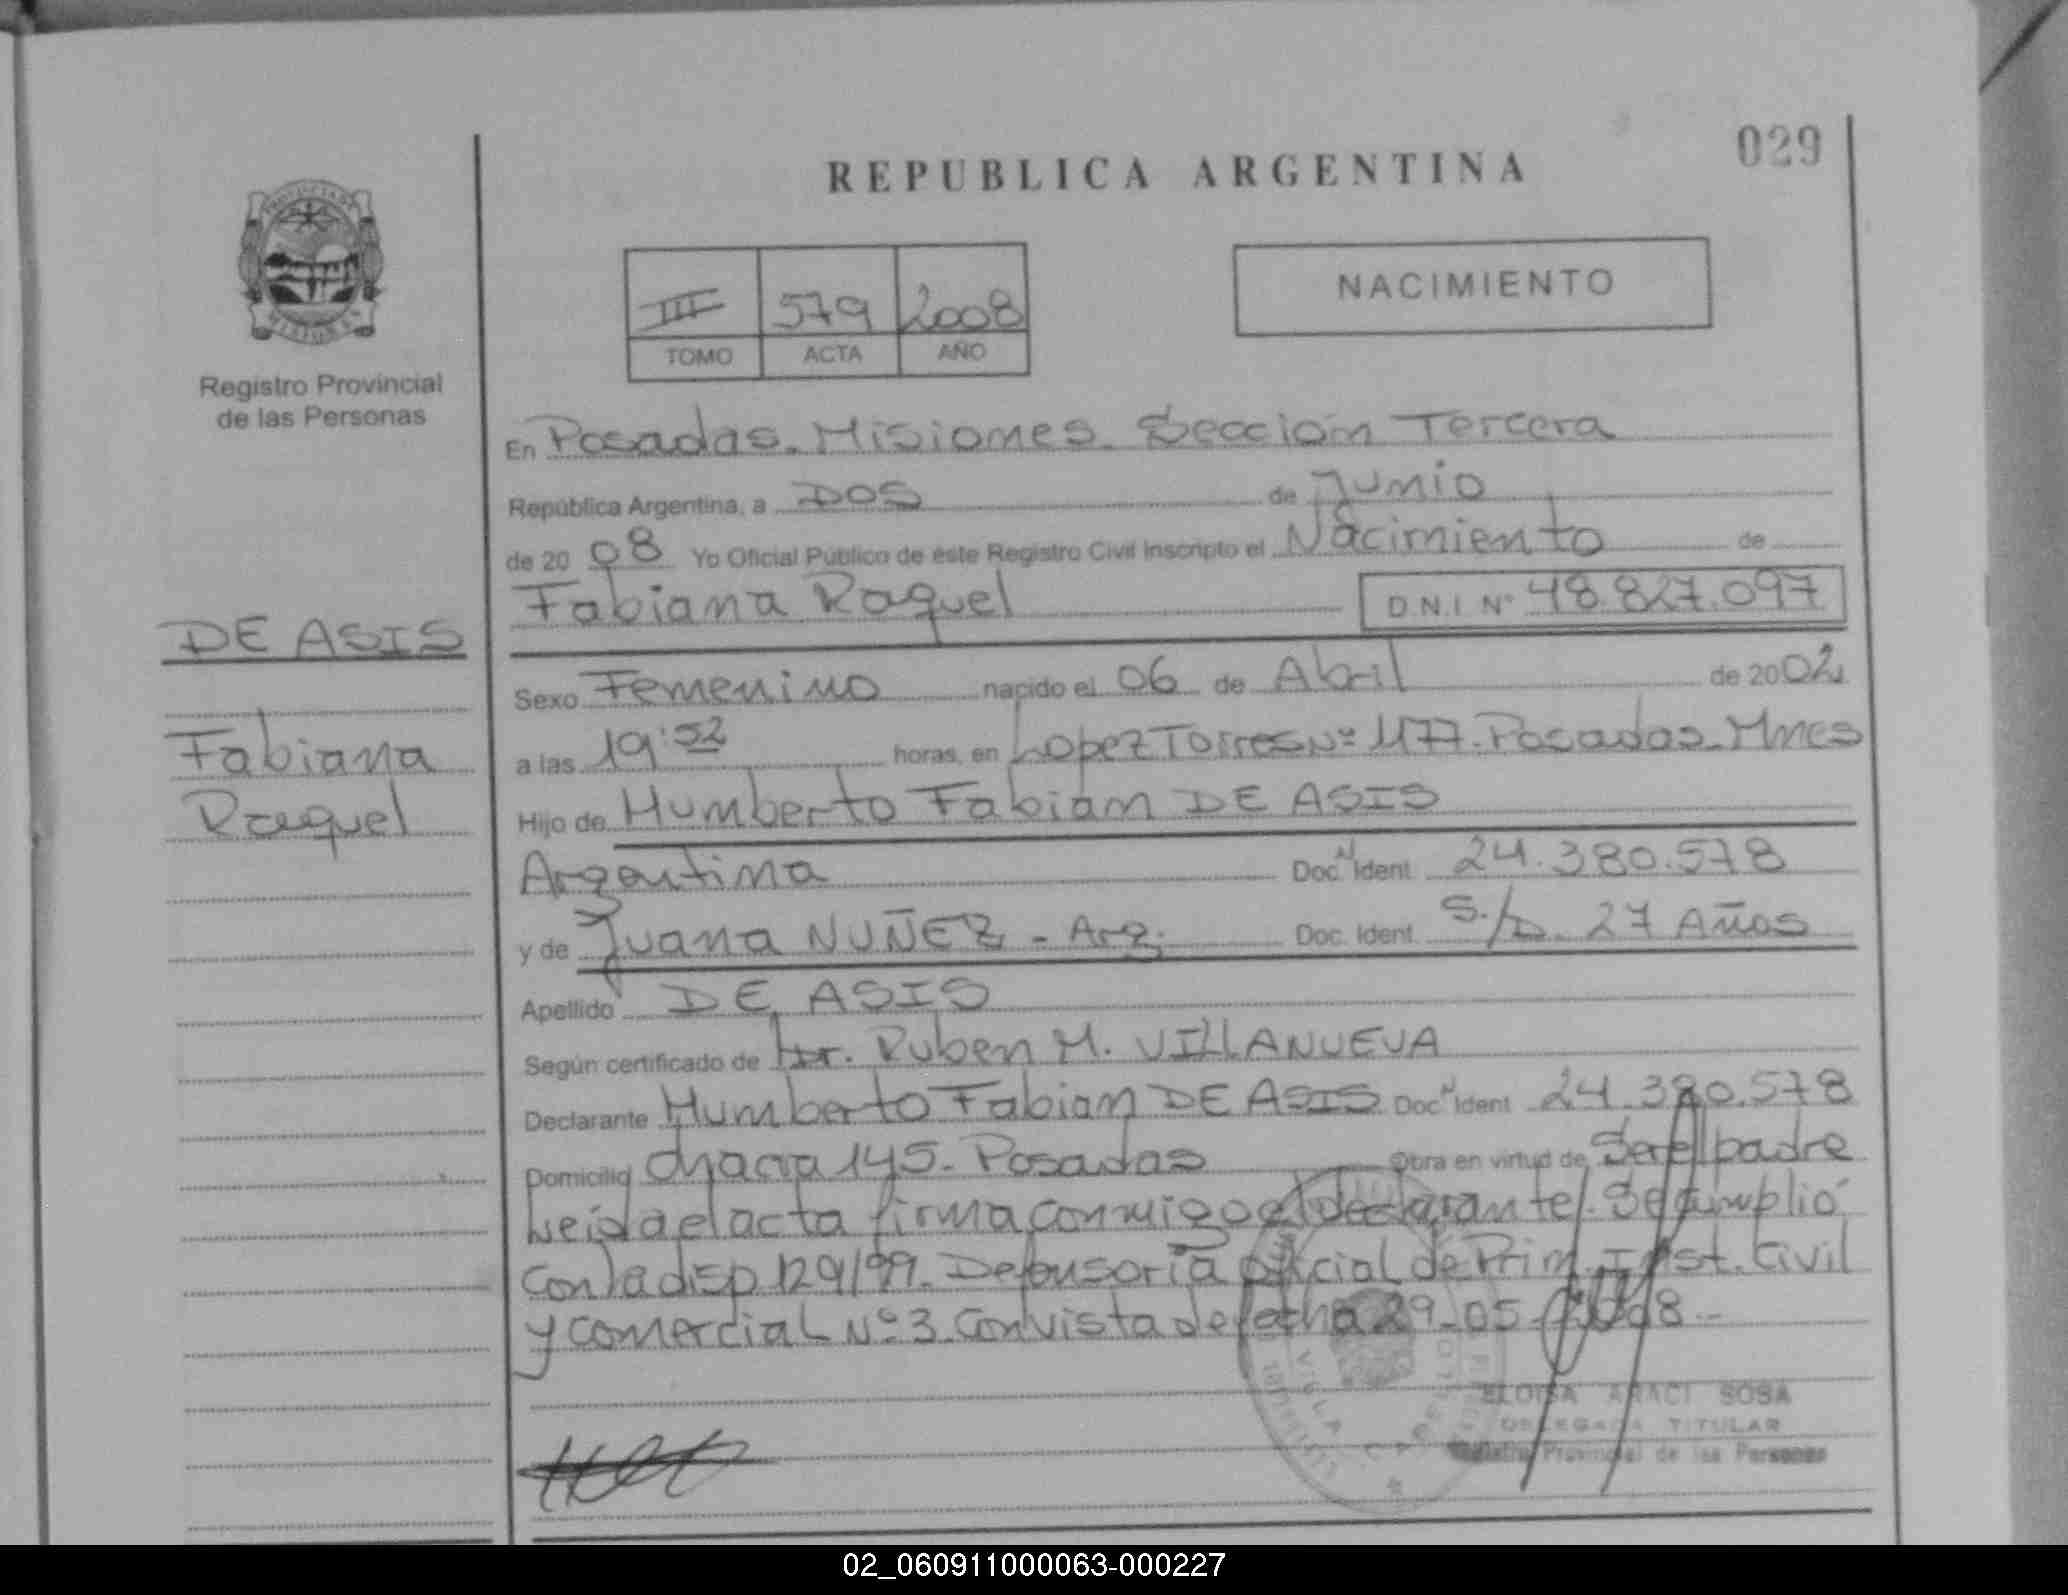 029
REPUBLICA ARGENTINA
PROVINCIA DE
MISIONES
Registro Provincial
de las Personas
III 579 2008
TOMO ACTA AÑO
NACIMIENTO
En Posadas. Misiones. Sección Tercera
República Argentina, a DOS de Junio
de 20 08 Yo Oficial Público de éste Registro Civil Inscripto el Nacimiento de
Fabiana Raquel D.N.I Nº 48.827.097
DE ASIS
Fabiana
Raquel
Sexo Femenino nacido el 06 de Abril de 2002
a las 19:52 horas, en Lopez Torres Nº 1177. Posadas. Mnes
Hijo de Humberto Fabian DE ASIS
Argentina Doc. N Ident 24.380.578
y de Juana NUÑEZ - Arg. Doc. Ident. S./D. 27 Años
Apellido DE ASIS
Según certificado de Dr. Ruben M. VILLANUEVA
Declarante Humberto Fabian DE ASIS Doc. N Ident 24.380.578
Domicilio chacra 145. Posadas Obra en virtud de Ser el padre
Leida el acta firma conmigo el declarante. Se cumplió
con la disp 129/99. Defensoria oficial de Prim. Inst. Civil
y comercial Nº 3. Con vista de fecha 29-05-2008.-
ELOISA ARACI SOSA
DELEGADA TITULAR
Registro Provincial de las Personas
02_060911000063-000227